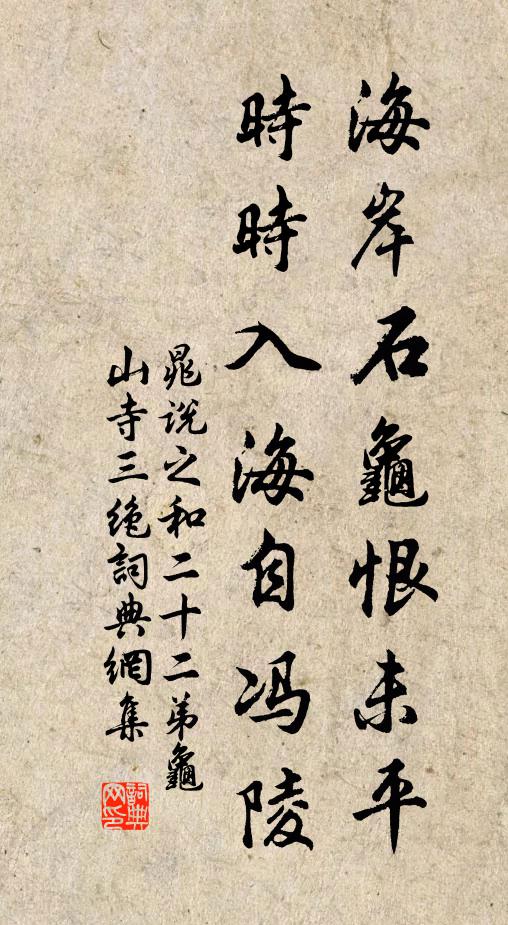 海岸石龜恨未平
時時入海自冯陵
晁説之和二十二弟龜
山寺三絶詞典網集
詞典
网印